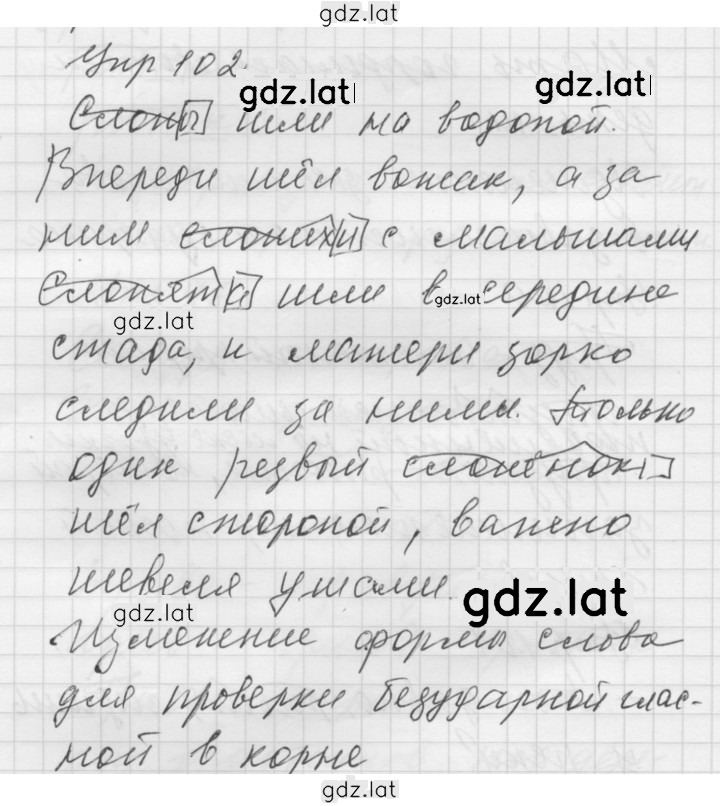 gdz.lat
Упр 102.
gdz.lat
Слоны шли на водопой.
Впереди шёл вожак, а за
ним слонихи с малышами
Слонята шли в gdz.lat середине
gdz.lat
стада, и матери зорко
следили за ними. Только
один резвый слонёнок
шёл стороной, важно
шевеля ушами.
gdz.lat
gdz.lat
Изменение формы слова
для проверки безударной глас-
ной в корне
gdz.lat